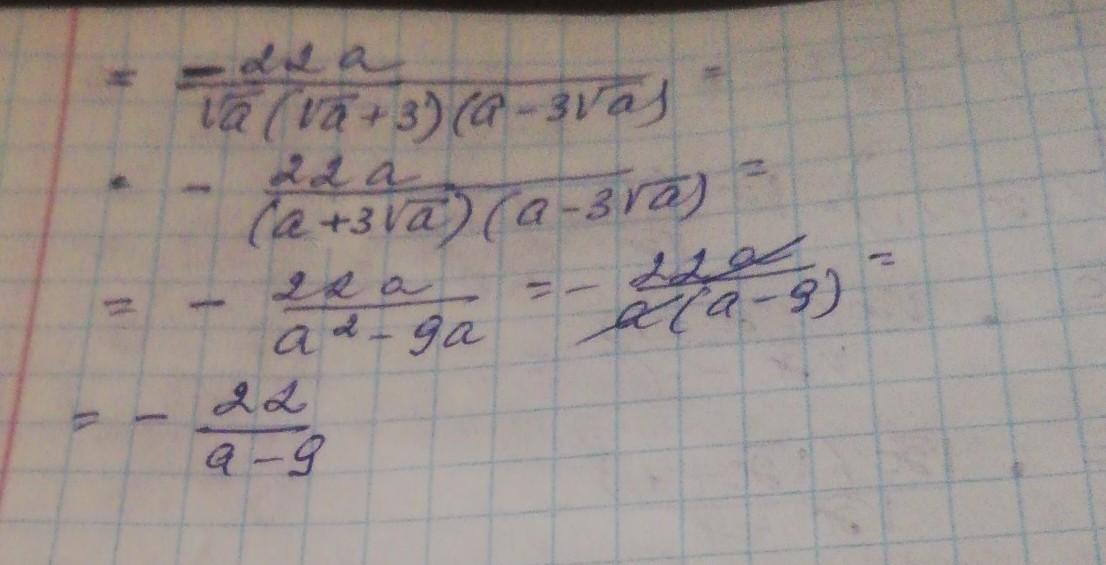 = -22a / √a(√a+3)(a-3√a) =
= - 22a / (a+3√a)(a-3√a) =
= - 22a / a²-9a = - 22a / a(a-9) =
= - 22 / a-9